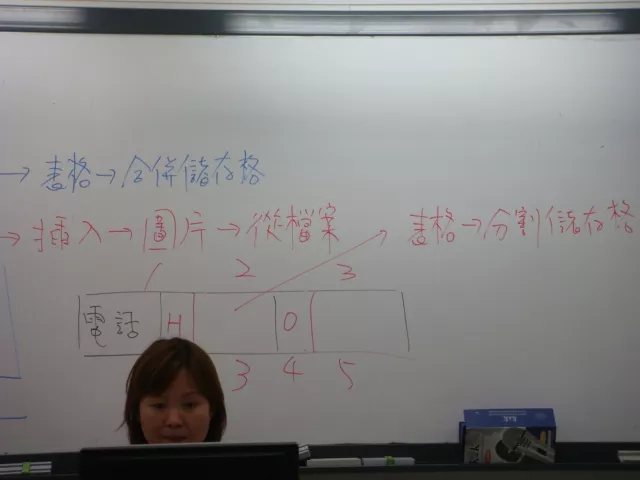 →表格→合併儲存格
→插入→圖片→從檔案
表格→分割儲存格
1 2 3
電話 H O
3 4 5